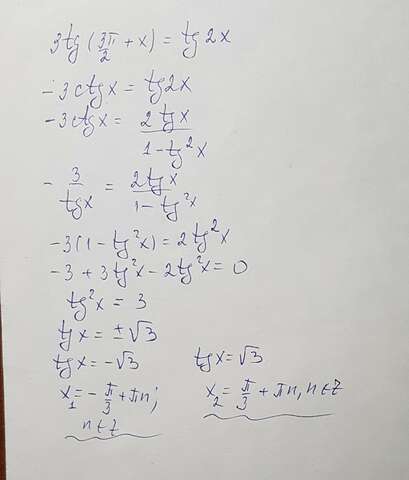 3tg(3π/2 + x) = tg2x
-3ctgx = tg2x
-3ctgx = 2tgx/1-tg²x
-3/tgx = 2tgx/1-tg²x
-3(1-tg²x) = 2tg²x
-3+3tg²x-2tg²x=0
tg²x = 3
tgx = ±√3
tgx = -√3 tgx = √3
x₁ = -π/3 + πn; x₂ = π/3 + πn, n∈z
n∈z